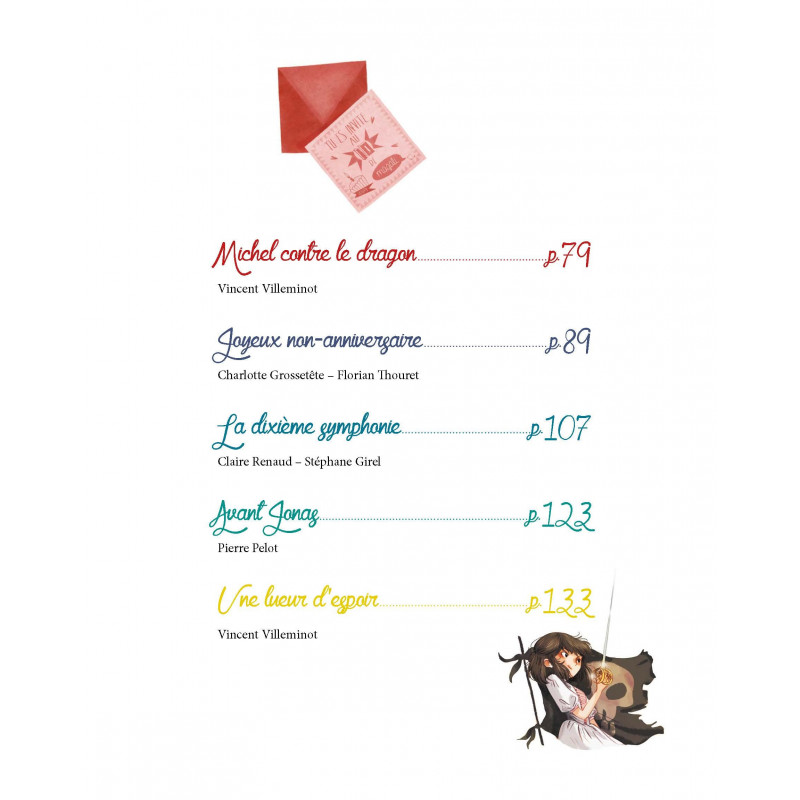 TU ES INVITÉ
AU
10
DE
Michel contre le dragon p.79
Vincent Villeminot
Joyeux non-anniversaire p.89
Charlotte Grossetête – Florian Thouret
La dixième symphonie p.107
Claire Renaud – Stéphane Girel
Avant Jonas p.123
Pierre Pelot
Une lueur d'espoir p.133
Vincent Villeminot